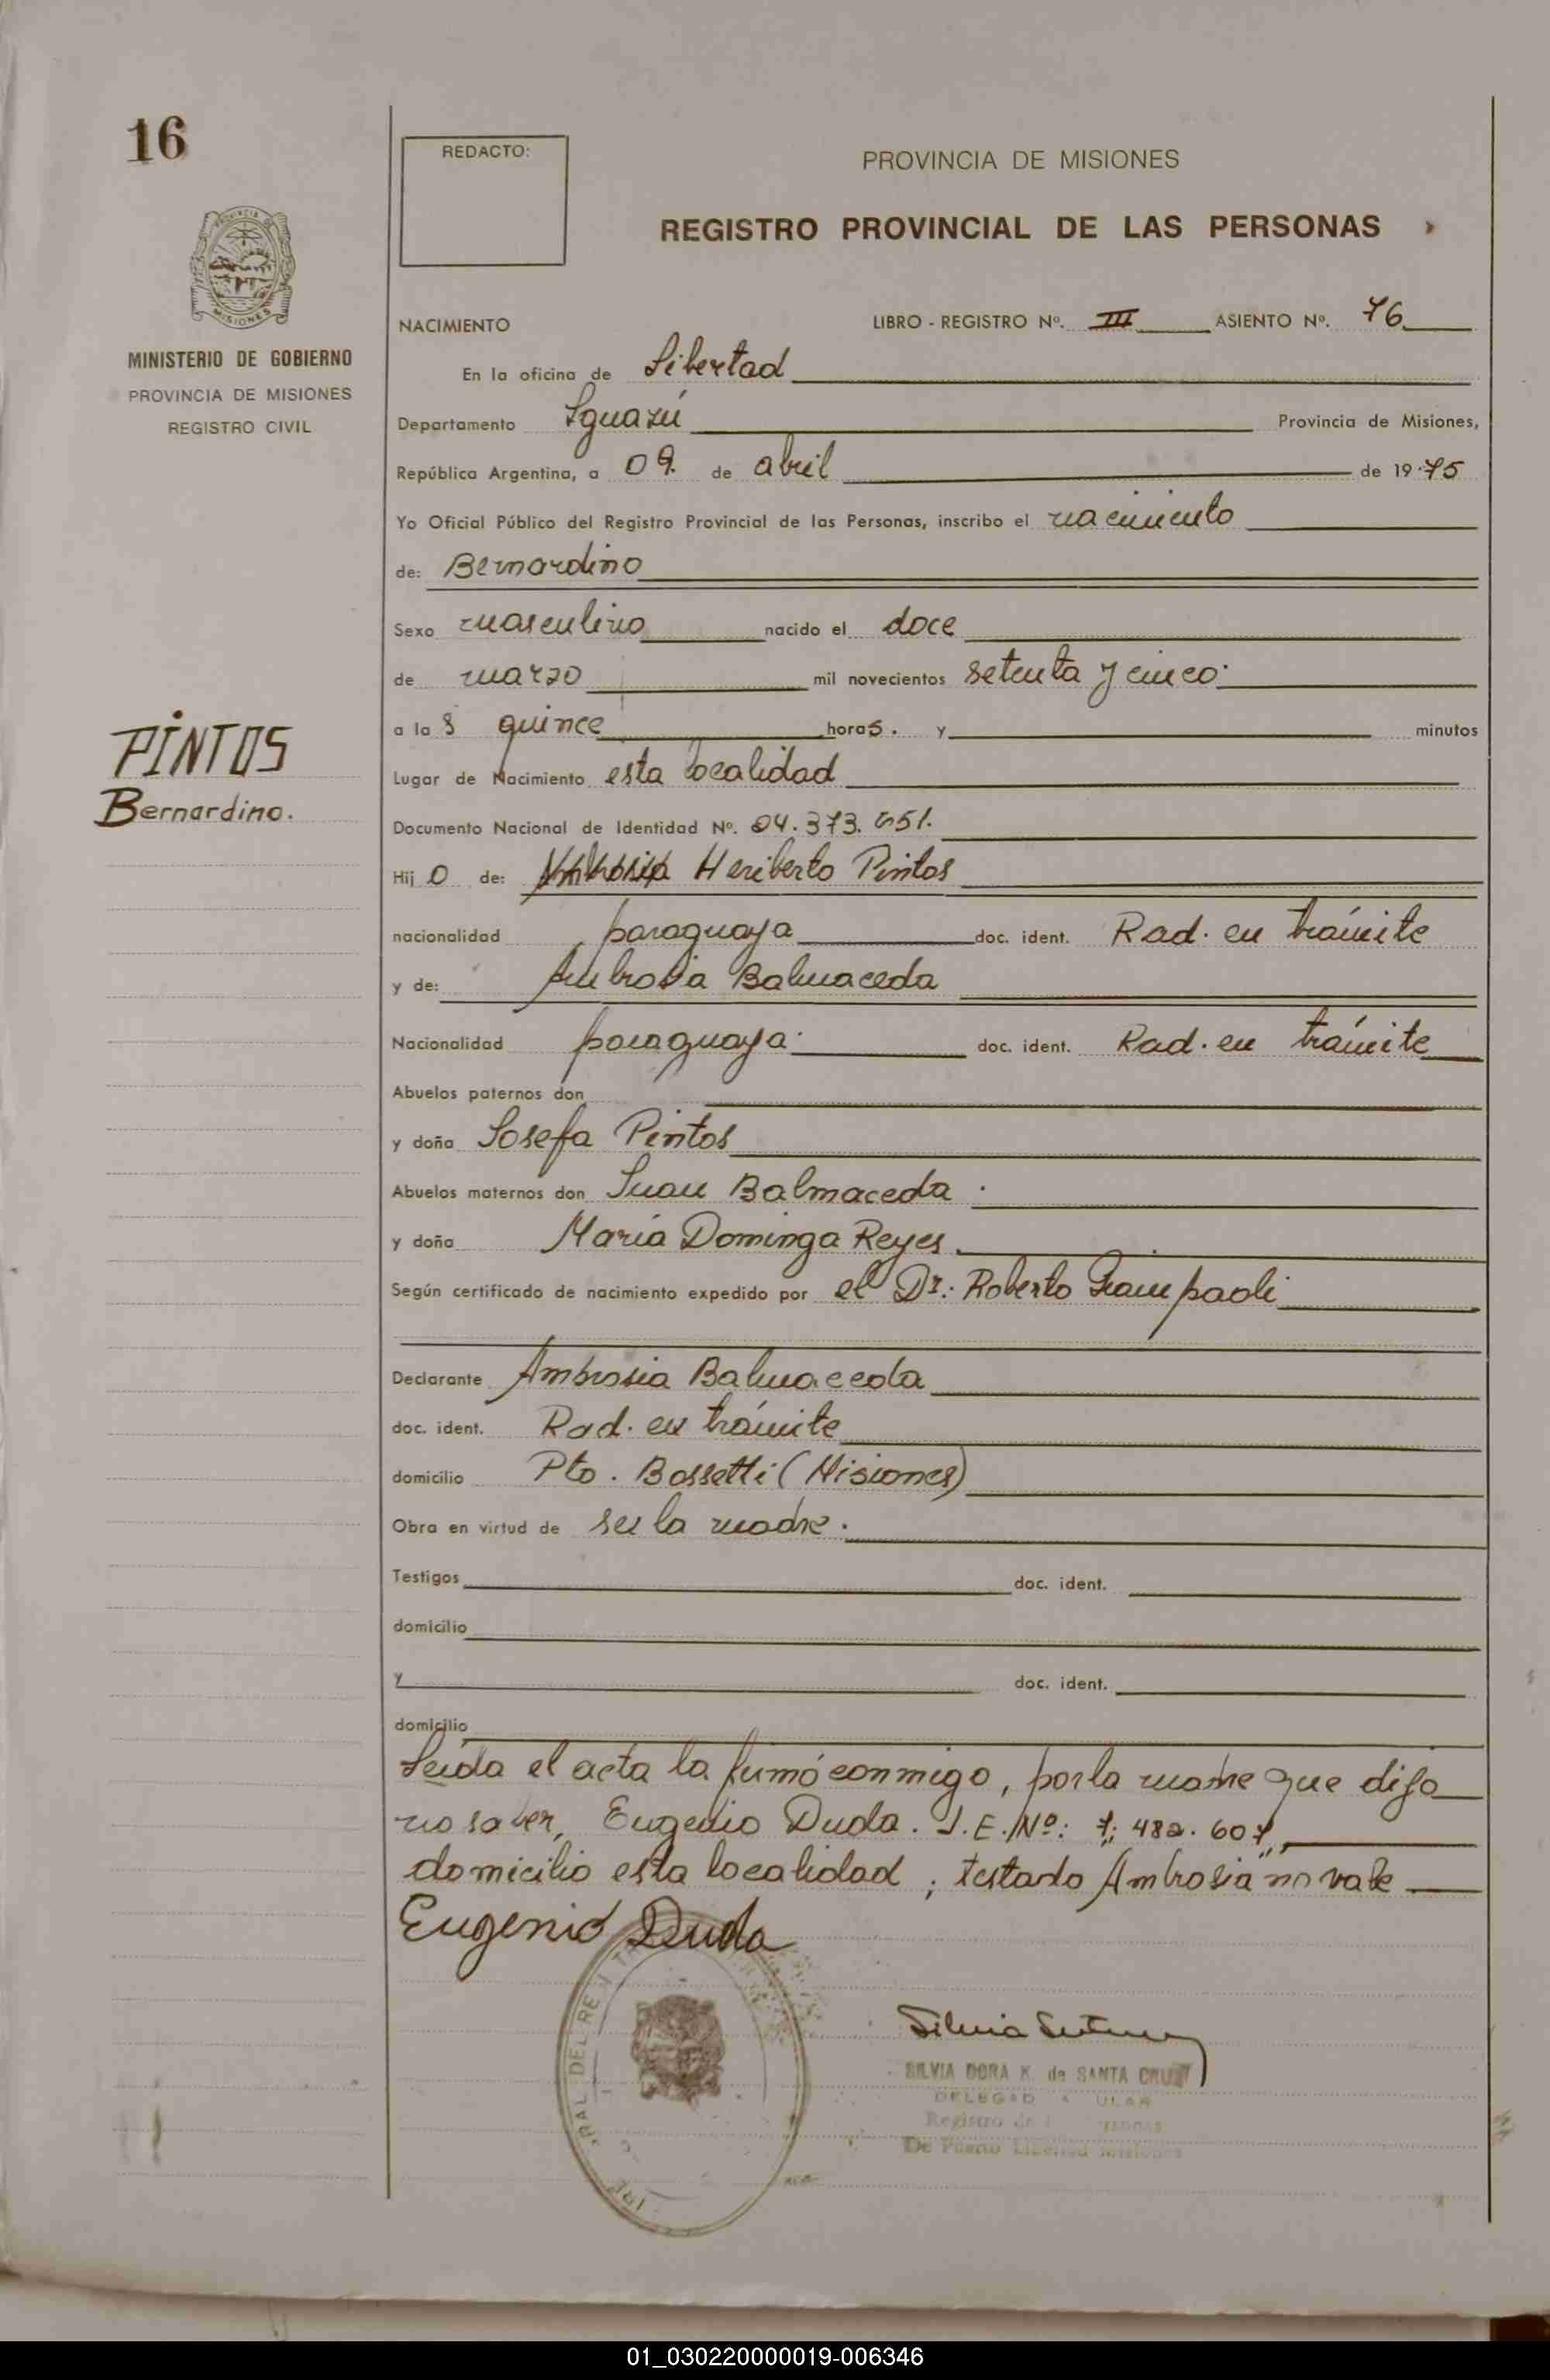 16
REDACTO:
PROVINCIA DE MISIONES
REGISTRO PROVINCIAL DE LAS PERSONAS
MISIONES
MINISTERIO DE GOBIERNO
PROVINCIA DE MISIONES
REGISTRO CIVIL
NACIMIENTO
LIBRO - REGISTRO Nº. III ASIENTO Nº. 76
En la oficina de Libertad
Departamento Iguazú Provincia de Misiones,
República Argentina, a 09. de abril de 1975
Yo Oficial Público del Registro Provincial de las Personas, inscribo el nacimiento
de: Bernardino
Sexo masculino nacido el doce
de marzo mil novecientos setenta y cinco.
a las quince horas. y minutos
PINTOS
Bernardino.
Lugar de Nacimiento esta localidad
Documento Nacional de Identidad Nº. 24.373.651.
Hijo de: Ambrosia Heriberto Pintos
nacionalidad paraguaya doc. ident. Rad. en trámite
y de: Ambrosia Balmaceda
Nacionalidad paraguaya. doc. ident. Rad. en trámite
Abuelos paternos don
y doña Josefa Pintos
Abuelos maternos don Juan Balmaceda.
y doña María Dominga Reyes.
Según certificado de nacimiento expedido por el Dr.: Roberto Giampaoli
Declarante Ambrosia Balmaceda
doc. ident. Rad. en trámite
domicilio Pto. Bossetti (Misiones)
Obra en virtud de ser la madre.
Testigos doc. ident.
domicilio
y doc. ident.
domicilio
Leída el acta la firmó conmigo, por la madre que dijo
no saber, Eugenio Duda. L.E.Nº: 7.482.607,
domicilio esta localidad; testado "Ambrosia" no vale
Eugenio Duda
SILVIA DORA K. de SANTA CRUZ
Registro de
De Puerto Libertad Misiones
01_030220000019-006346